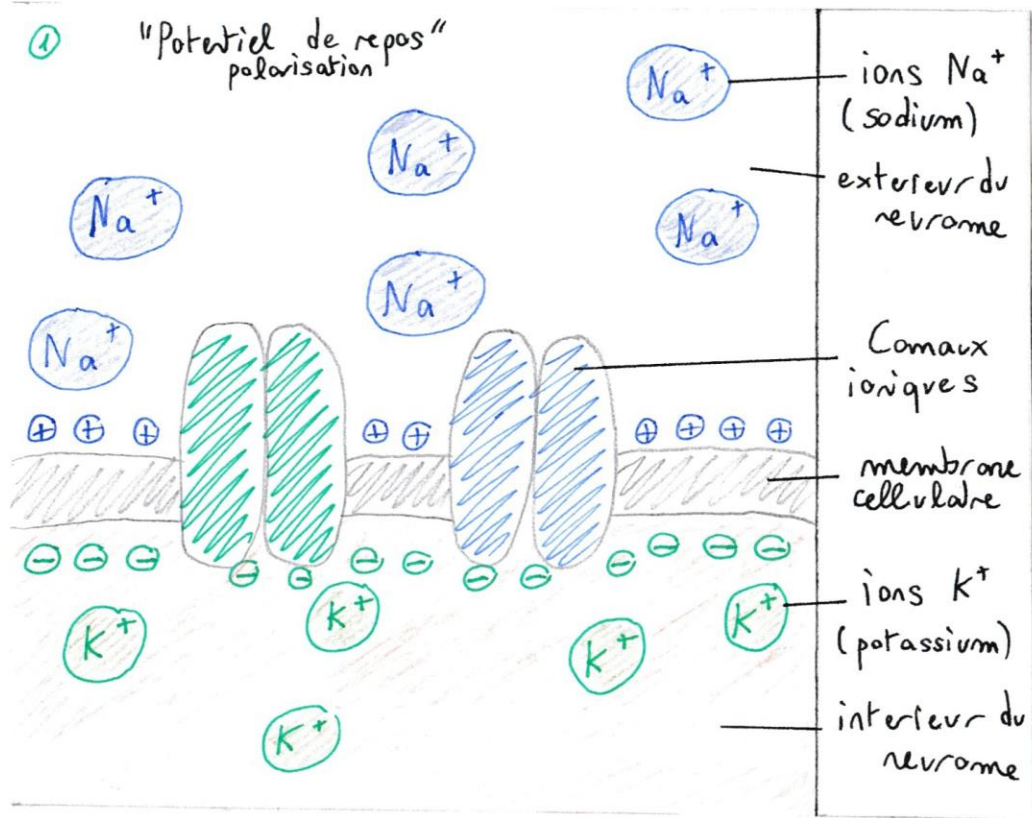 1
"Potentiel de repos"
polarisation
Na+
Na+
Na+
Na+
Na+
Na+
+ + +
+ +
+ + + +
- - -
- -
- -
- -
- - - -
K+
K+
K+
K+
K+
ions Na+
(sodium)
exterieur du
neurone
Canaux
ioniques
membrane
cellulaire
ions K+
(potassium)
interieur du
neurone